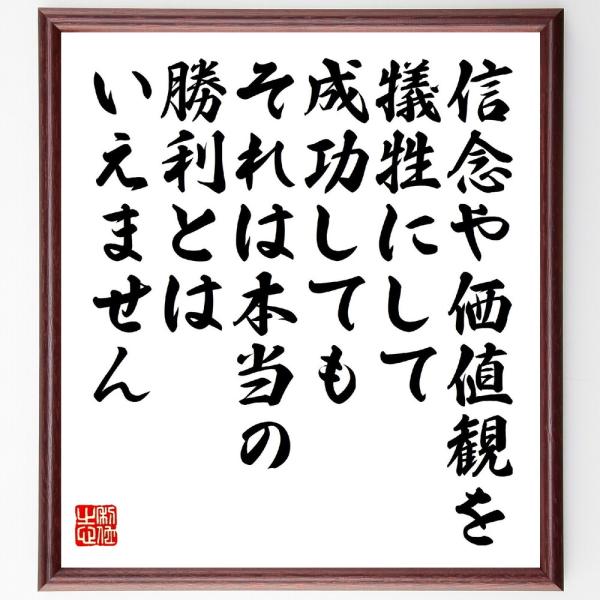 信念や価値観を
犠牲にして
成功しても
それは本当の
勝利とは
いえません